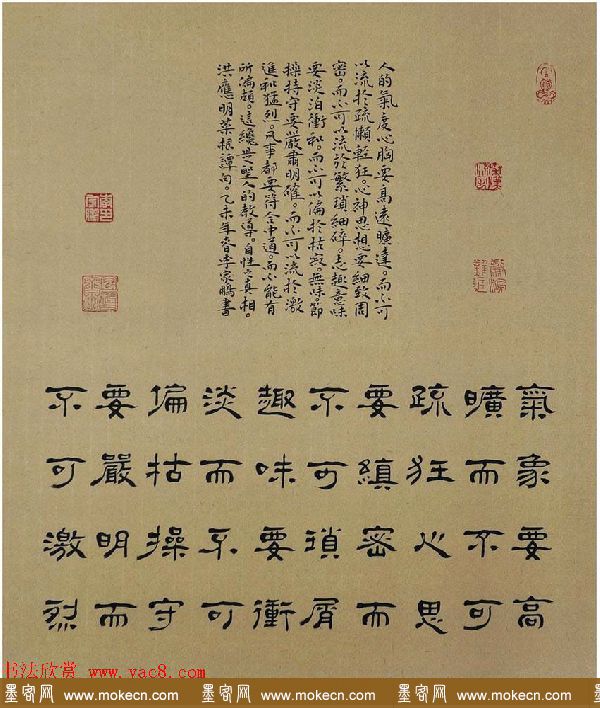 人的氣度心胸要高遠曠達。而不可
以流於疏懶輕狂心神思想要細致周
密。而不可以流於繁瑣細碎。志趣意味
要淡泊衝和。而不可以偏於枯寂。無味。節
操持守要嚴肅明確。而不可以流於激
進和猛烈。凡事都要符合中道。而不能有
所偏頗。這纔是聖人的教導。自性之真相。
洪應明菜根譚句。乙未年春李家鵬書
氣象要高
曠而不可
疏狂心思
要縝密而
不可瑣屑
趣味要衝
淡而不可
偏枯操守
要嚴明而
不可激烈
书法欣赏 www.yac8.com
墨客网 www.mokecn.com 墨客网 www.mokecn.com 墨客网 www.mokecn.com